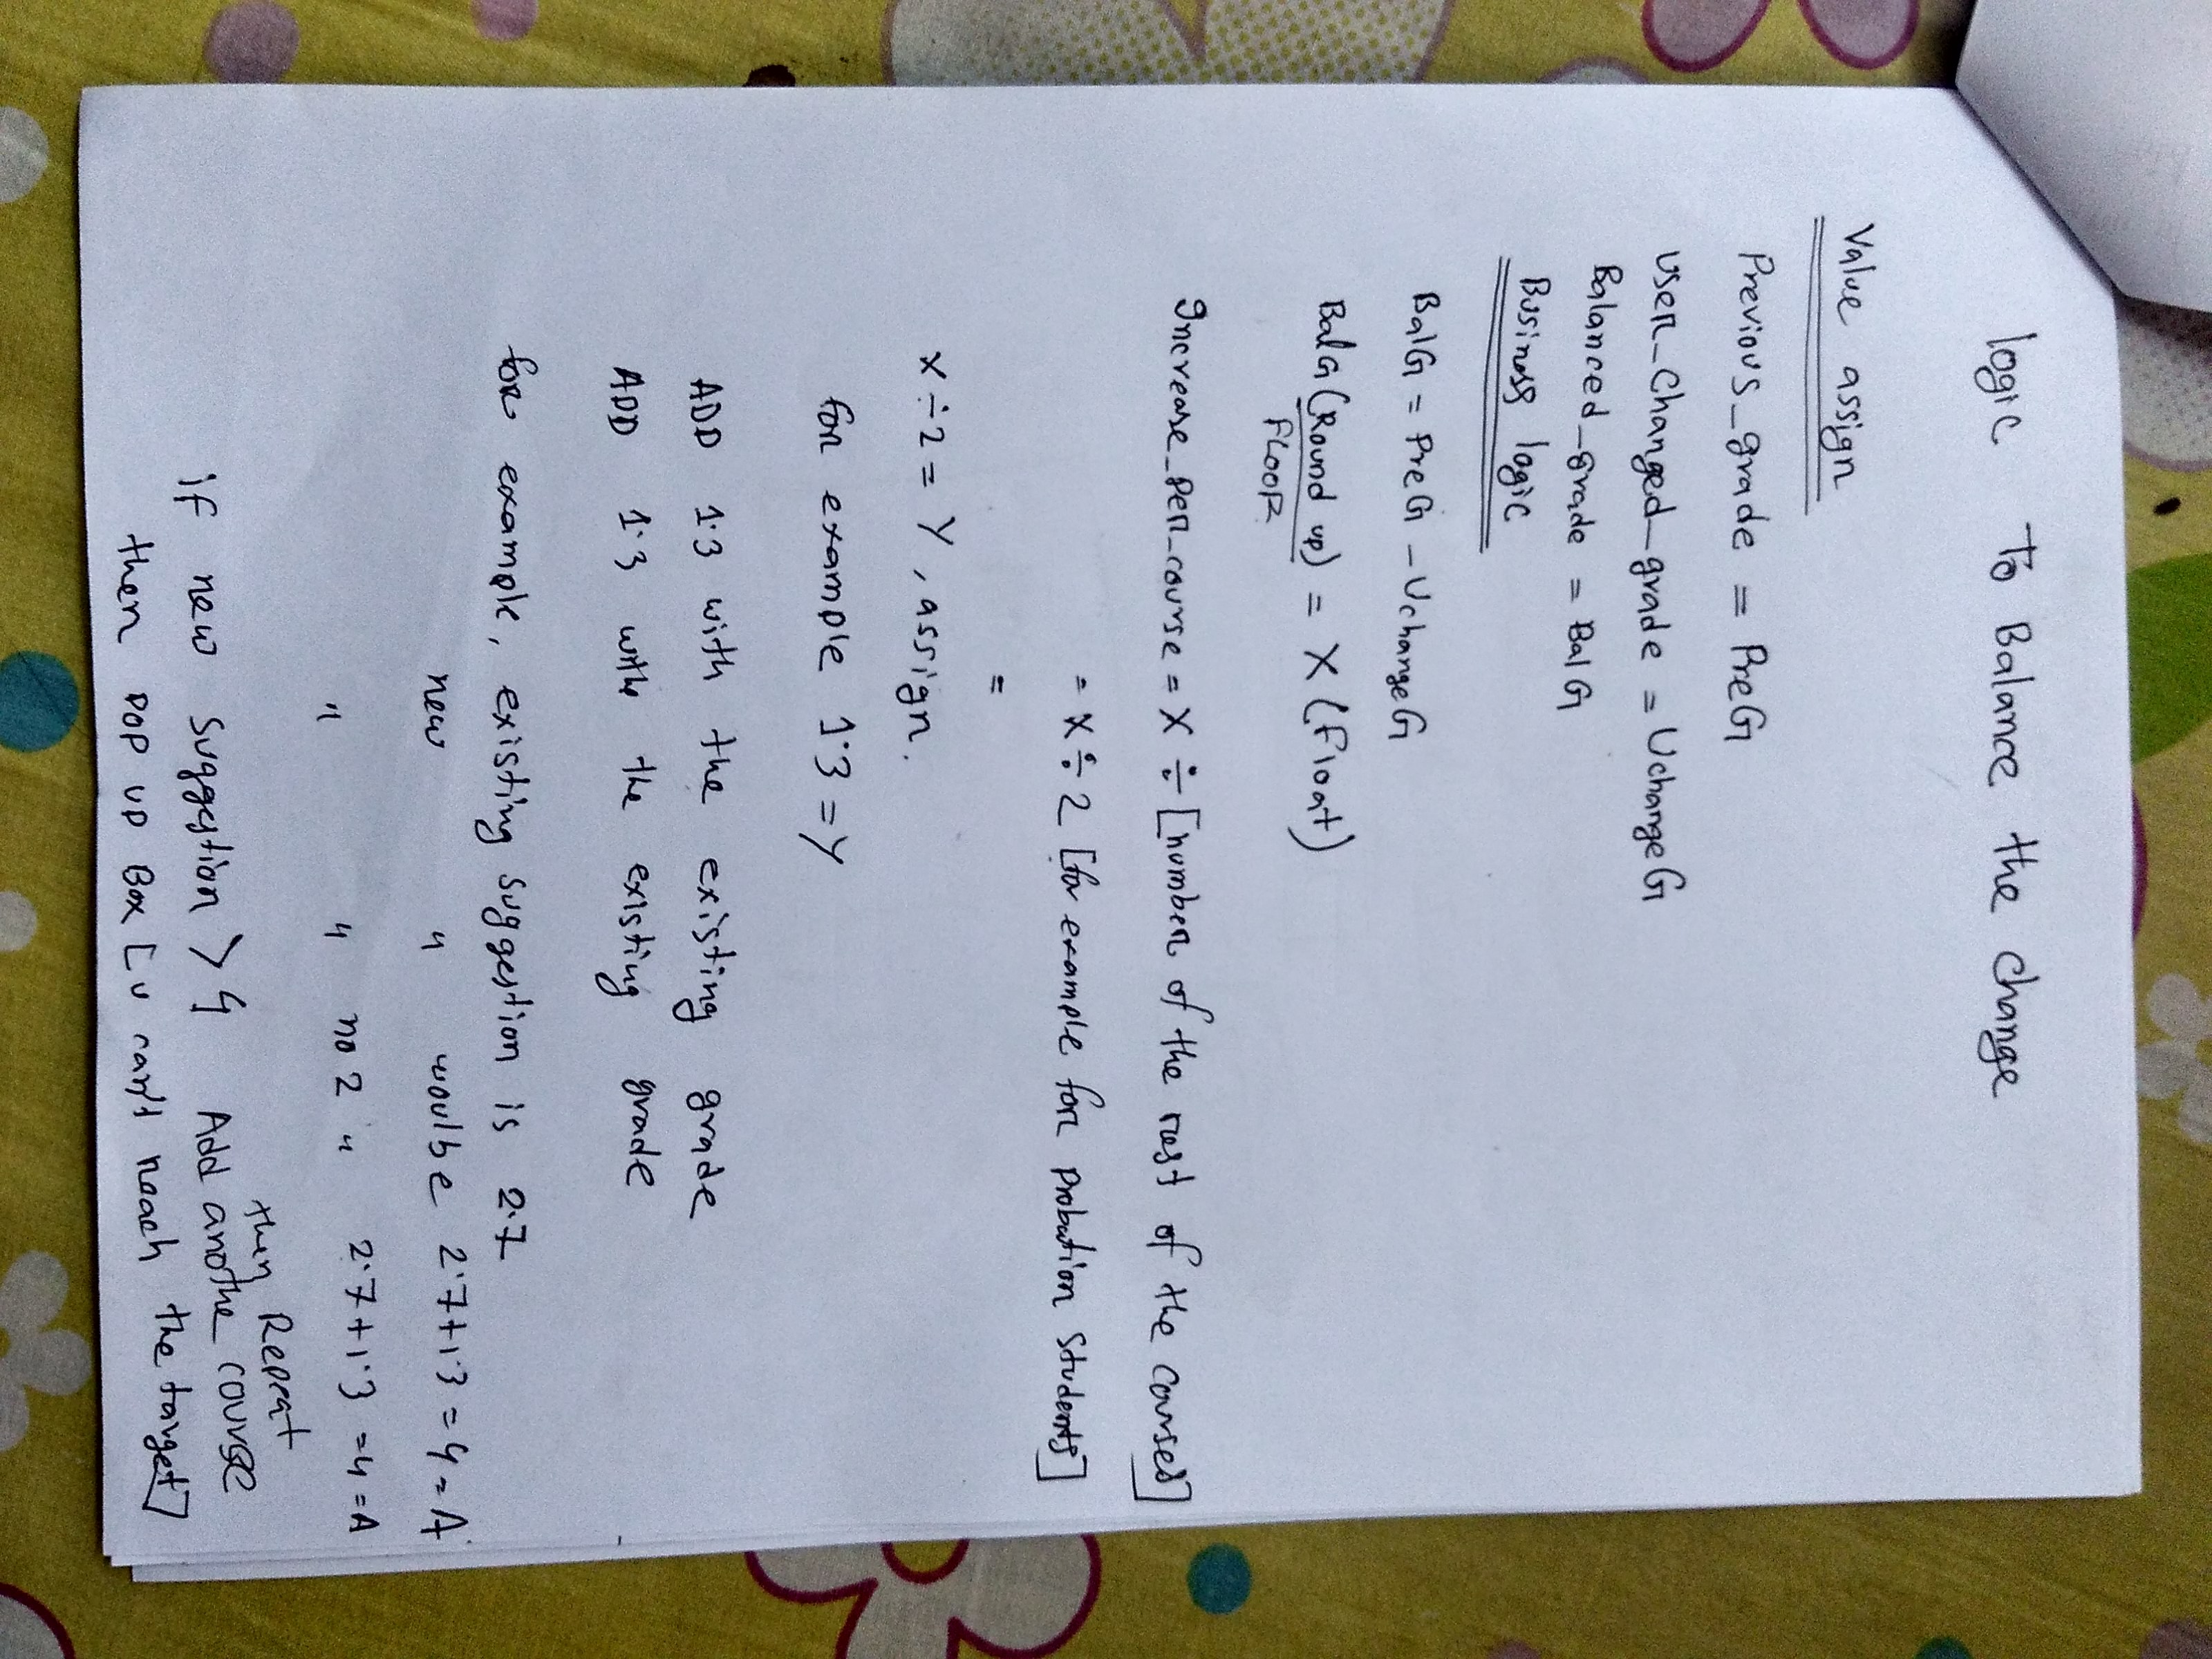 logic To Balance the change
Value assign
Previous_grade = PreG
User_Changed_grade = UchangeG
Balanced_grade = BalG
Business logic
BalG = PreG - UchangeG
BalG (Round up) = X (Float)
FLOOR
Increase_per_course = X ÷ [number of the rest of the courses]
= X ÷ 2 [for example for probation students]
=
X ÷ 2 = Y, assign.
for example 1.3 = Y
ADD 1.3 with the existing grade
ADD 1.3 withe the existing grade
for example, existing suggestion is 2.7
new " woulbe 2.7+1.3 = 4 = A
" " no 2 " 2.7+1.3 = 4 = A
then Repeat
if new suggestion > 4 Add anothe course
then POP UP Box [u can't reach the target]